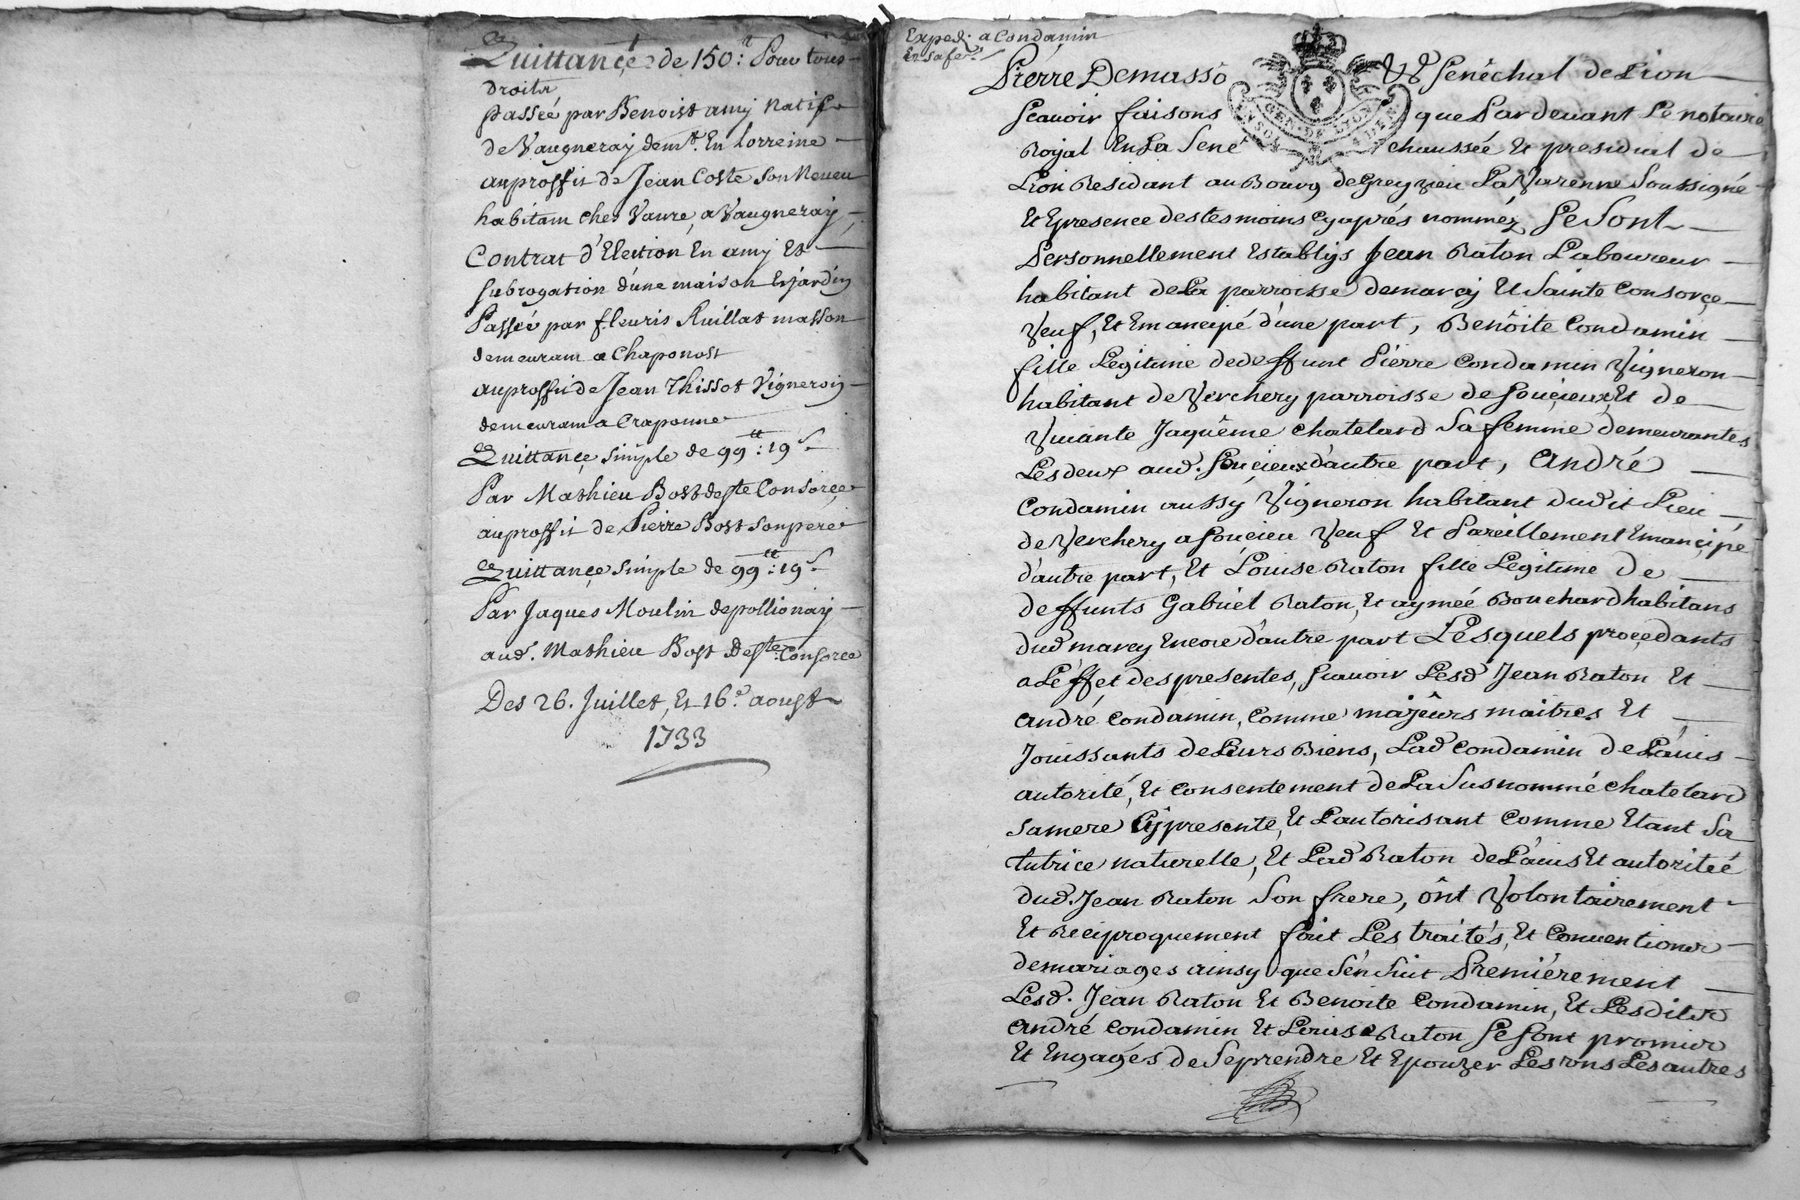 Quittance de 150:ᵗ Pour tous
droits
passée par Benoist amy Natif
de Vaugneray demᵗ. En Lorreine
auproffit de Jean Coste Son Neveu
habitam ches Vaure, a Vaugneray,
Contrat d'Election En amy Et
subrogation d'une maison Et jardin
Passée par fleuris Ruillat masson
demeuram a Chaponost
auproffit de Jean Thissot Vigneron
demeuram a Craponne
Quittance simple de 99ᵗᵗ: 19ˢ
Par Mathieu Bost de Sᵗᵉ Consorce
auproffit de Pierre Bost son pere
Quittance simple de 99ᵗᵗ: 19ˢ
Par Jaques Moulin de pollionay
aud. Mathieu Bost de Sᵗᵉ Consorce
Des 26. Juillet, Et 16ᵉ aoust
1733
Exped. a Condamin
Pierre Demasso Senéchal de Lion
Scavoir faisons que Pardevant Le notaire
Royal En La Sené chaussée Et presidial de
Lion Residant au Bourg de Greyzieu La Varenne Soussigné
Et Epresence des tesmoins cyaprés nommez Se Sont
Personnellement Establys Jean Raton Laboureur
habitant de La parroisse de marcy Et Sainte Consorce
Veuf, Et Emancipé d'une part, Benôite Condamin
fille Legitime de deffunt Pierre Condamin Vigneron
habitant de Verchery parroisse de Soucieux Et de
Vivante Jaquême Chatelard Sa femme demeurantes
Les deux aud. Soucieux d'autre part, André
Condamin aussy Vigneron habitant dudit Lieu
de Verchery a Soucieu Veuf Et Pareillement Emancipé
d'autre part, Et Louise Raton fille Legitime de
deffunts Gabriel Raton, Et aymée Bouchard habitans
dud marcy Encore d'autre part Lesquels procedants
a L'effet des presentes, Scavoir Lesd Jean Raton Et
André Condamin, Comme majeurs maitres Et
Jouissants de Leurs Biens, Lad Condamin de L'avis
autorité, Et Consentement de La Susnommé Chatelard
Sa mere Cy presente, Et L'autorisant Comme Etant Sa
tutrice naturelle, Et Lad Raton de L'avis Et autoritée
dud. Jean Raton Son frere, ônt Volontairement
Et Reciproquement fait Les traités, Et Conventions
de mariages ainsy que S'en Suit Premiérement
Lesd. Jean Raton Et Benoite Condamin, Et Lesdits
André Condamin Et Louise Raton Se Sont promis
Et Engagés de Se prendre Et Epouzer Les uns Les autres